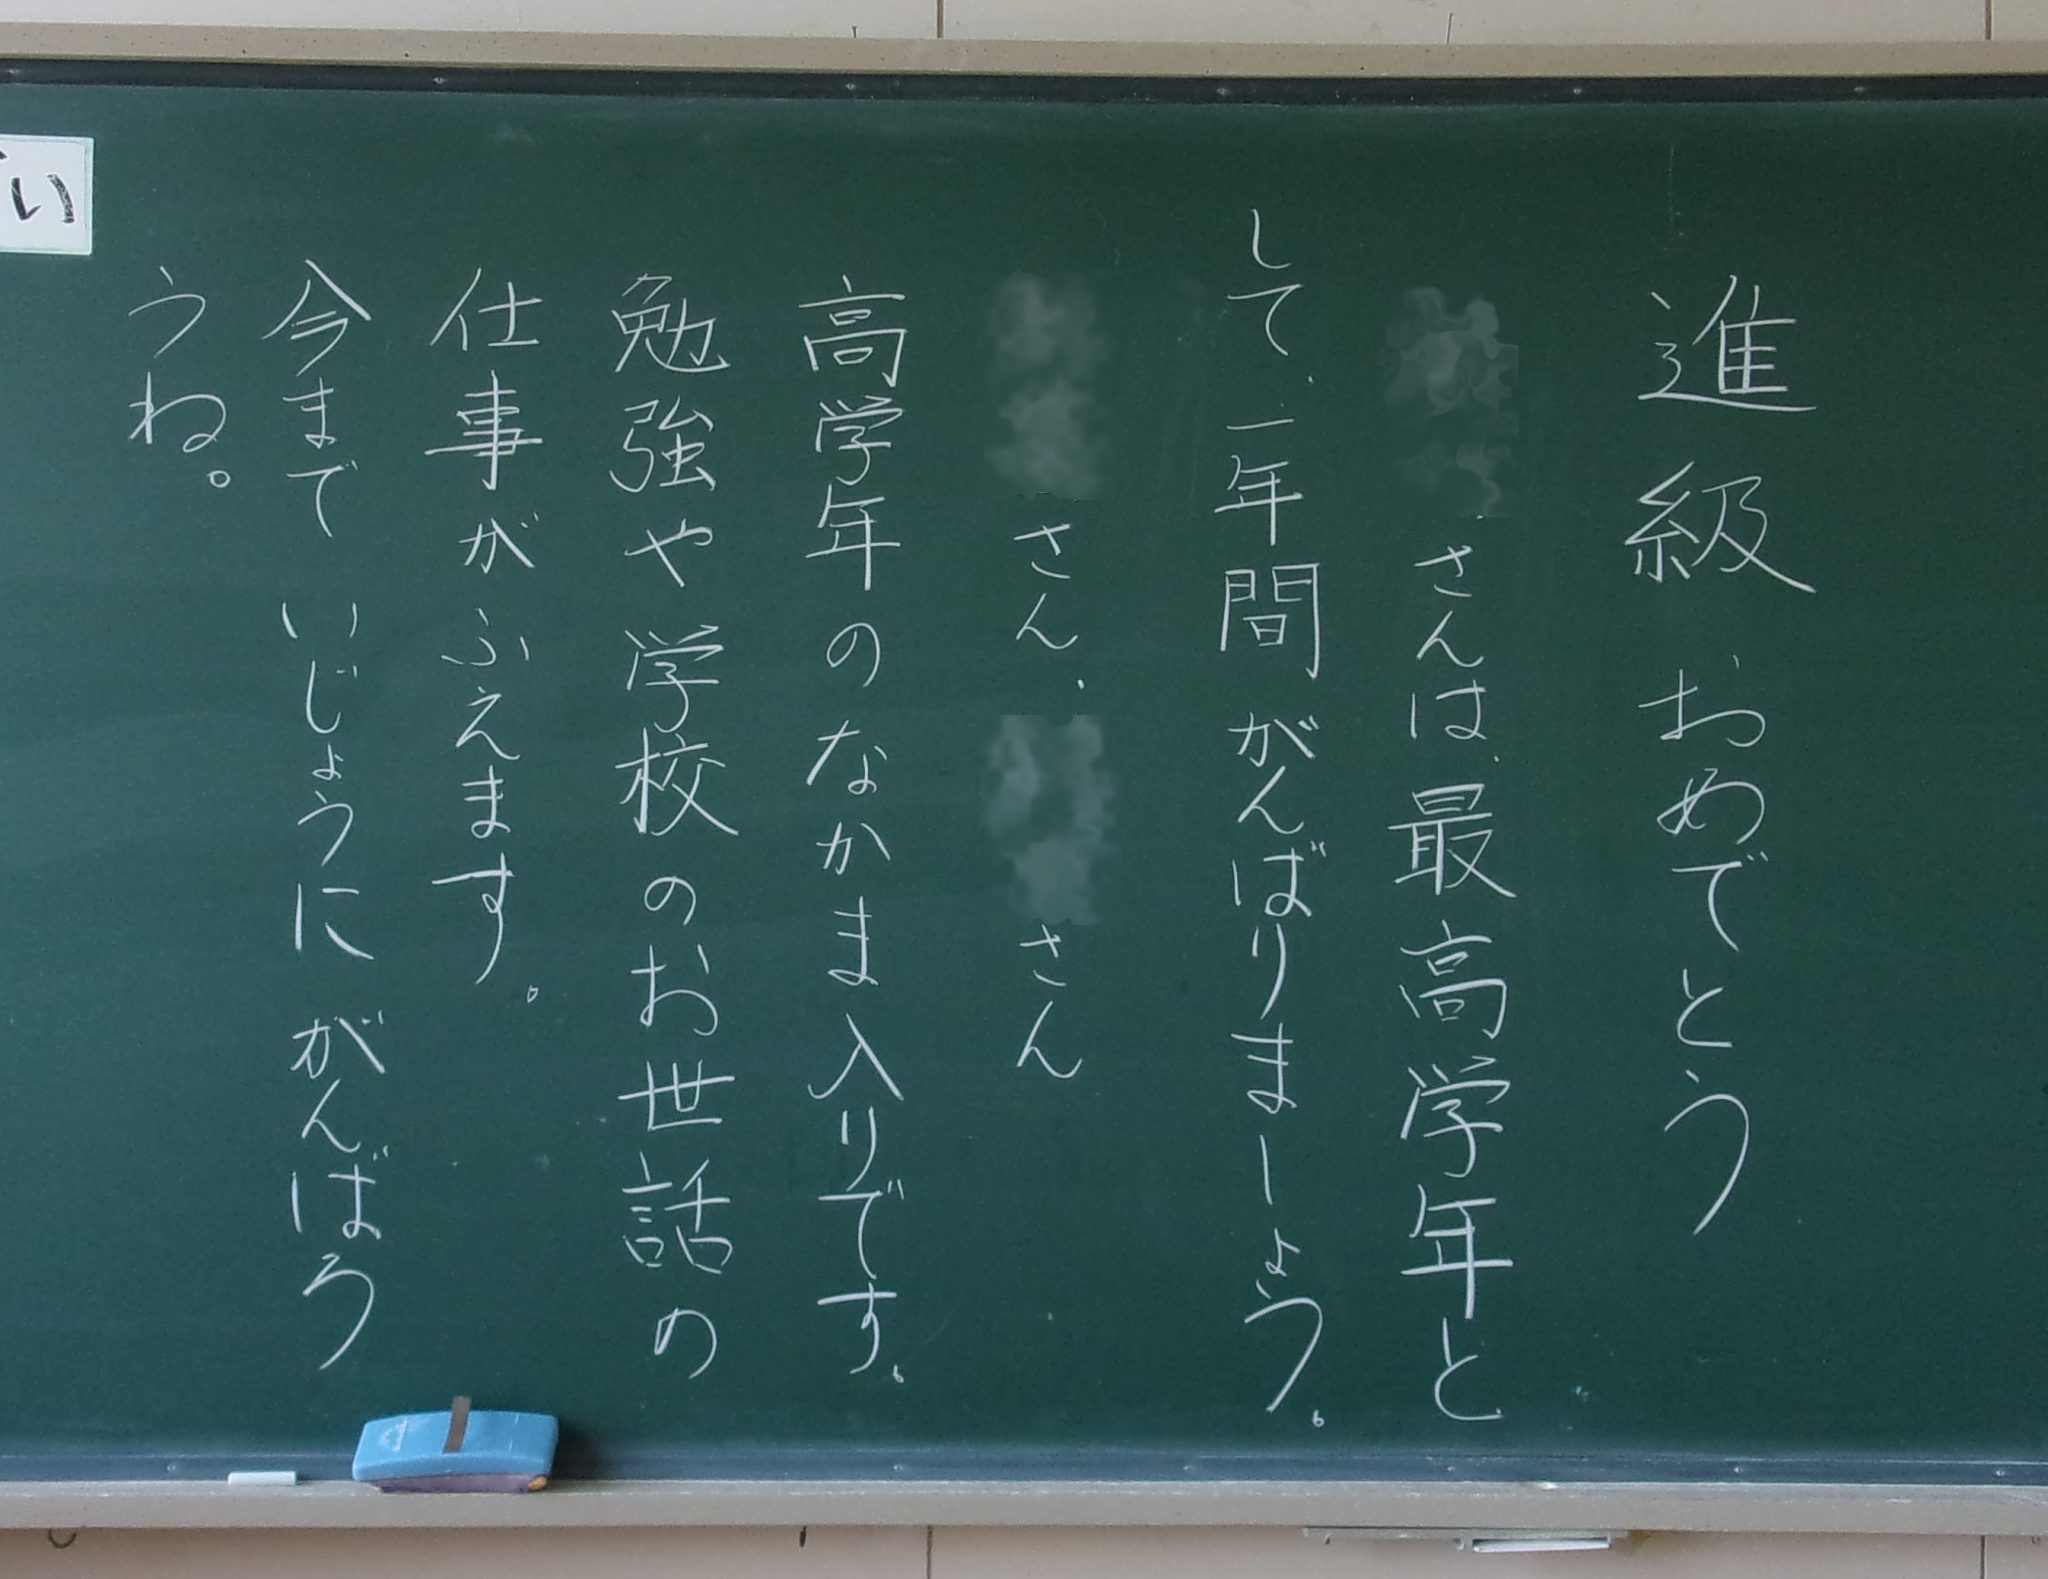 進級おめでとう
さんは、最高学年と
して、一年間がんばりましょう。
さん、さん
高学年のなかま入りです。
勉強や学校のお世話の
仕事がふえます。
今まで いじょうに がんばろ
うね。
い